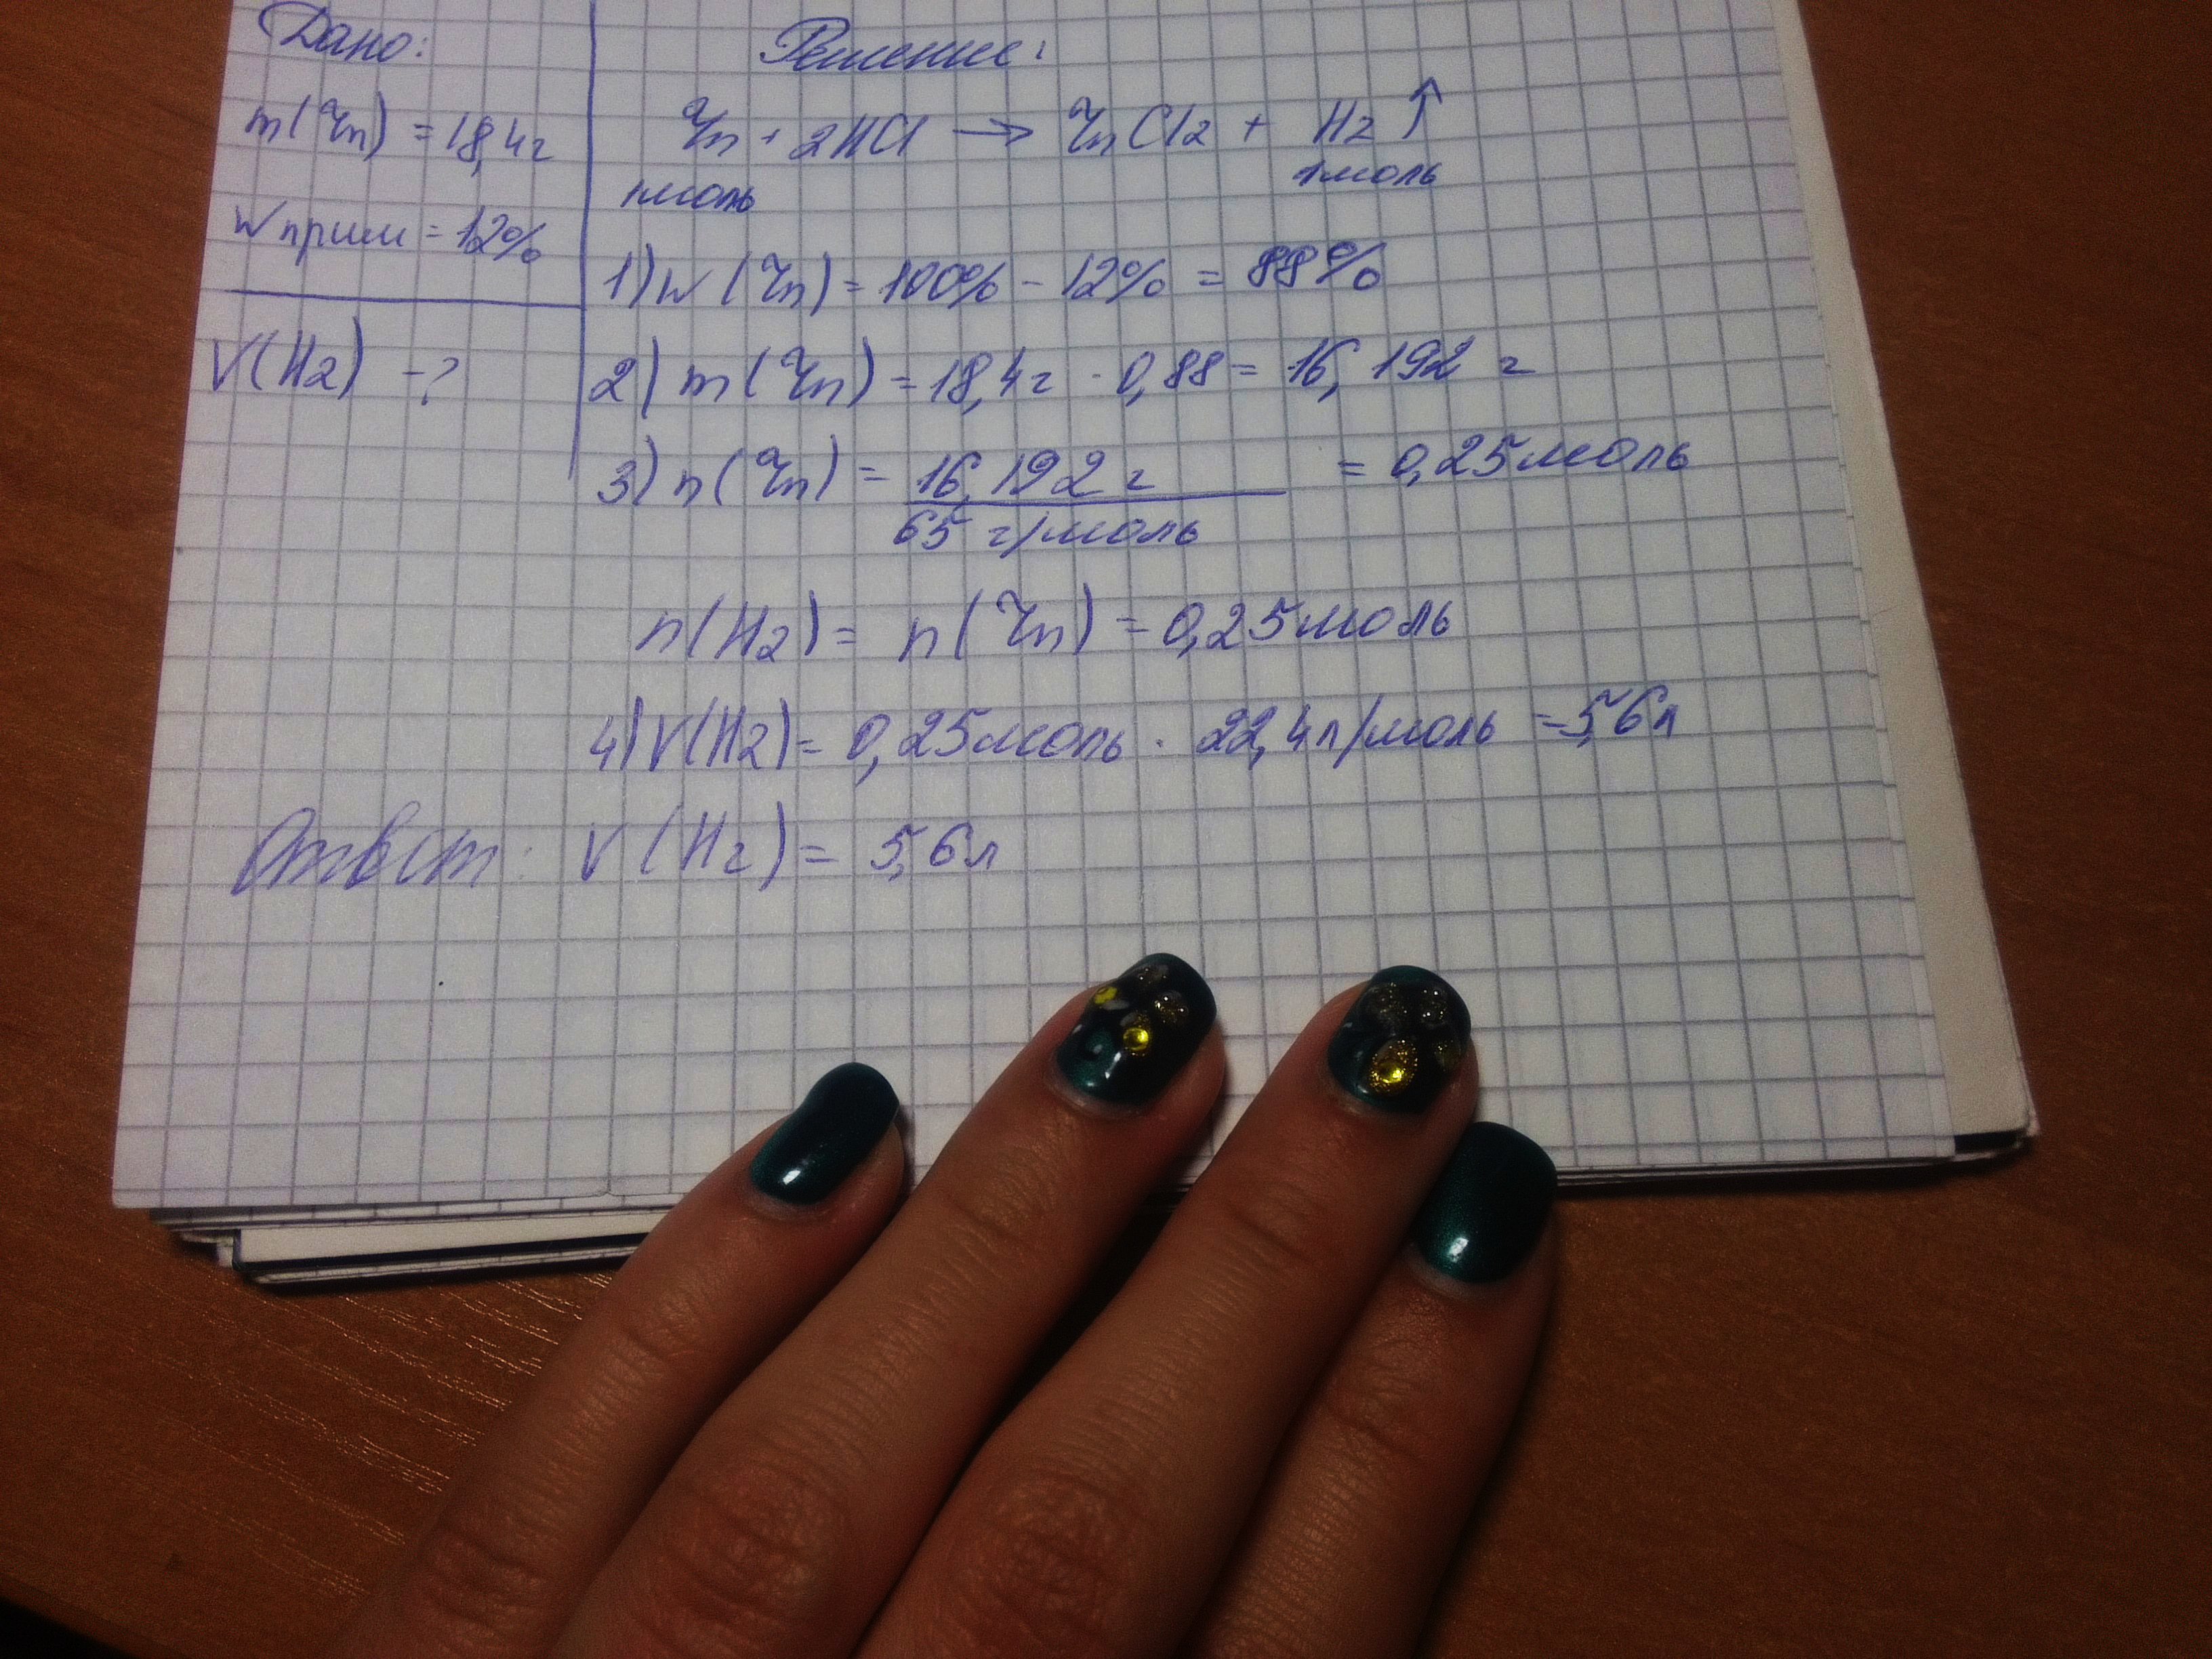 Дано:
m(Zn) = 18,4г
W прим = 12%
V(H2) - ?
Решение:
Zn + 2HCl → ZnCl2 + H2 ↑
1моль 1моль
1) W (Zn) = 100% - 12% = 88%
2) m (Zn) = 18,4г · 0,88 = 16,192 г
3) n (Zn) = 16,192 г = 0,25моль
65 г/моль
n(H2) = n(Zn) = 0,25моль
4) V(H2) = 0,25моль · 22,4л/моль = 5,6л
Ответ: V (H2) = 5,6л